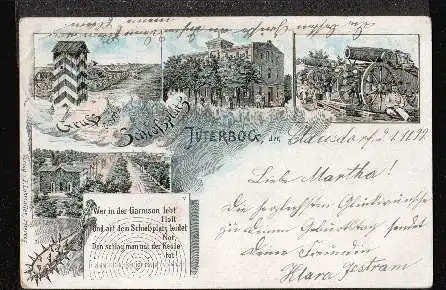 Gruss vom
Schiessplatz
JÜTERBOG, den
1.11.99
Liebe Martha!
Die herzlichsten Glückwünsche
zu deinem Geburtstag sendet
deine Freundin
Klara Jestram
Wer in der Garnison lebt
flott
Und auf dem Schießplatz leidet
Not,
Den schlag man mit der Keule
tot